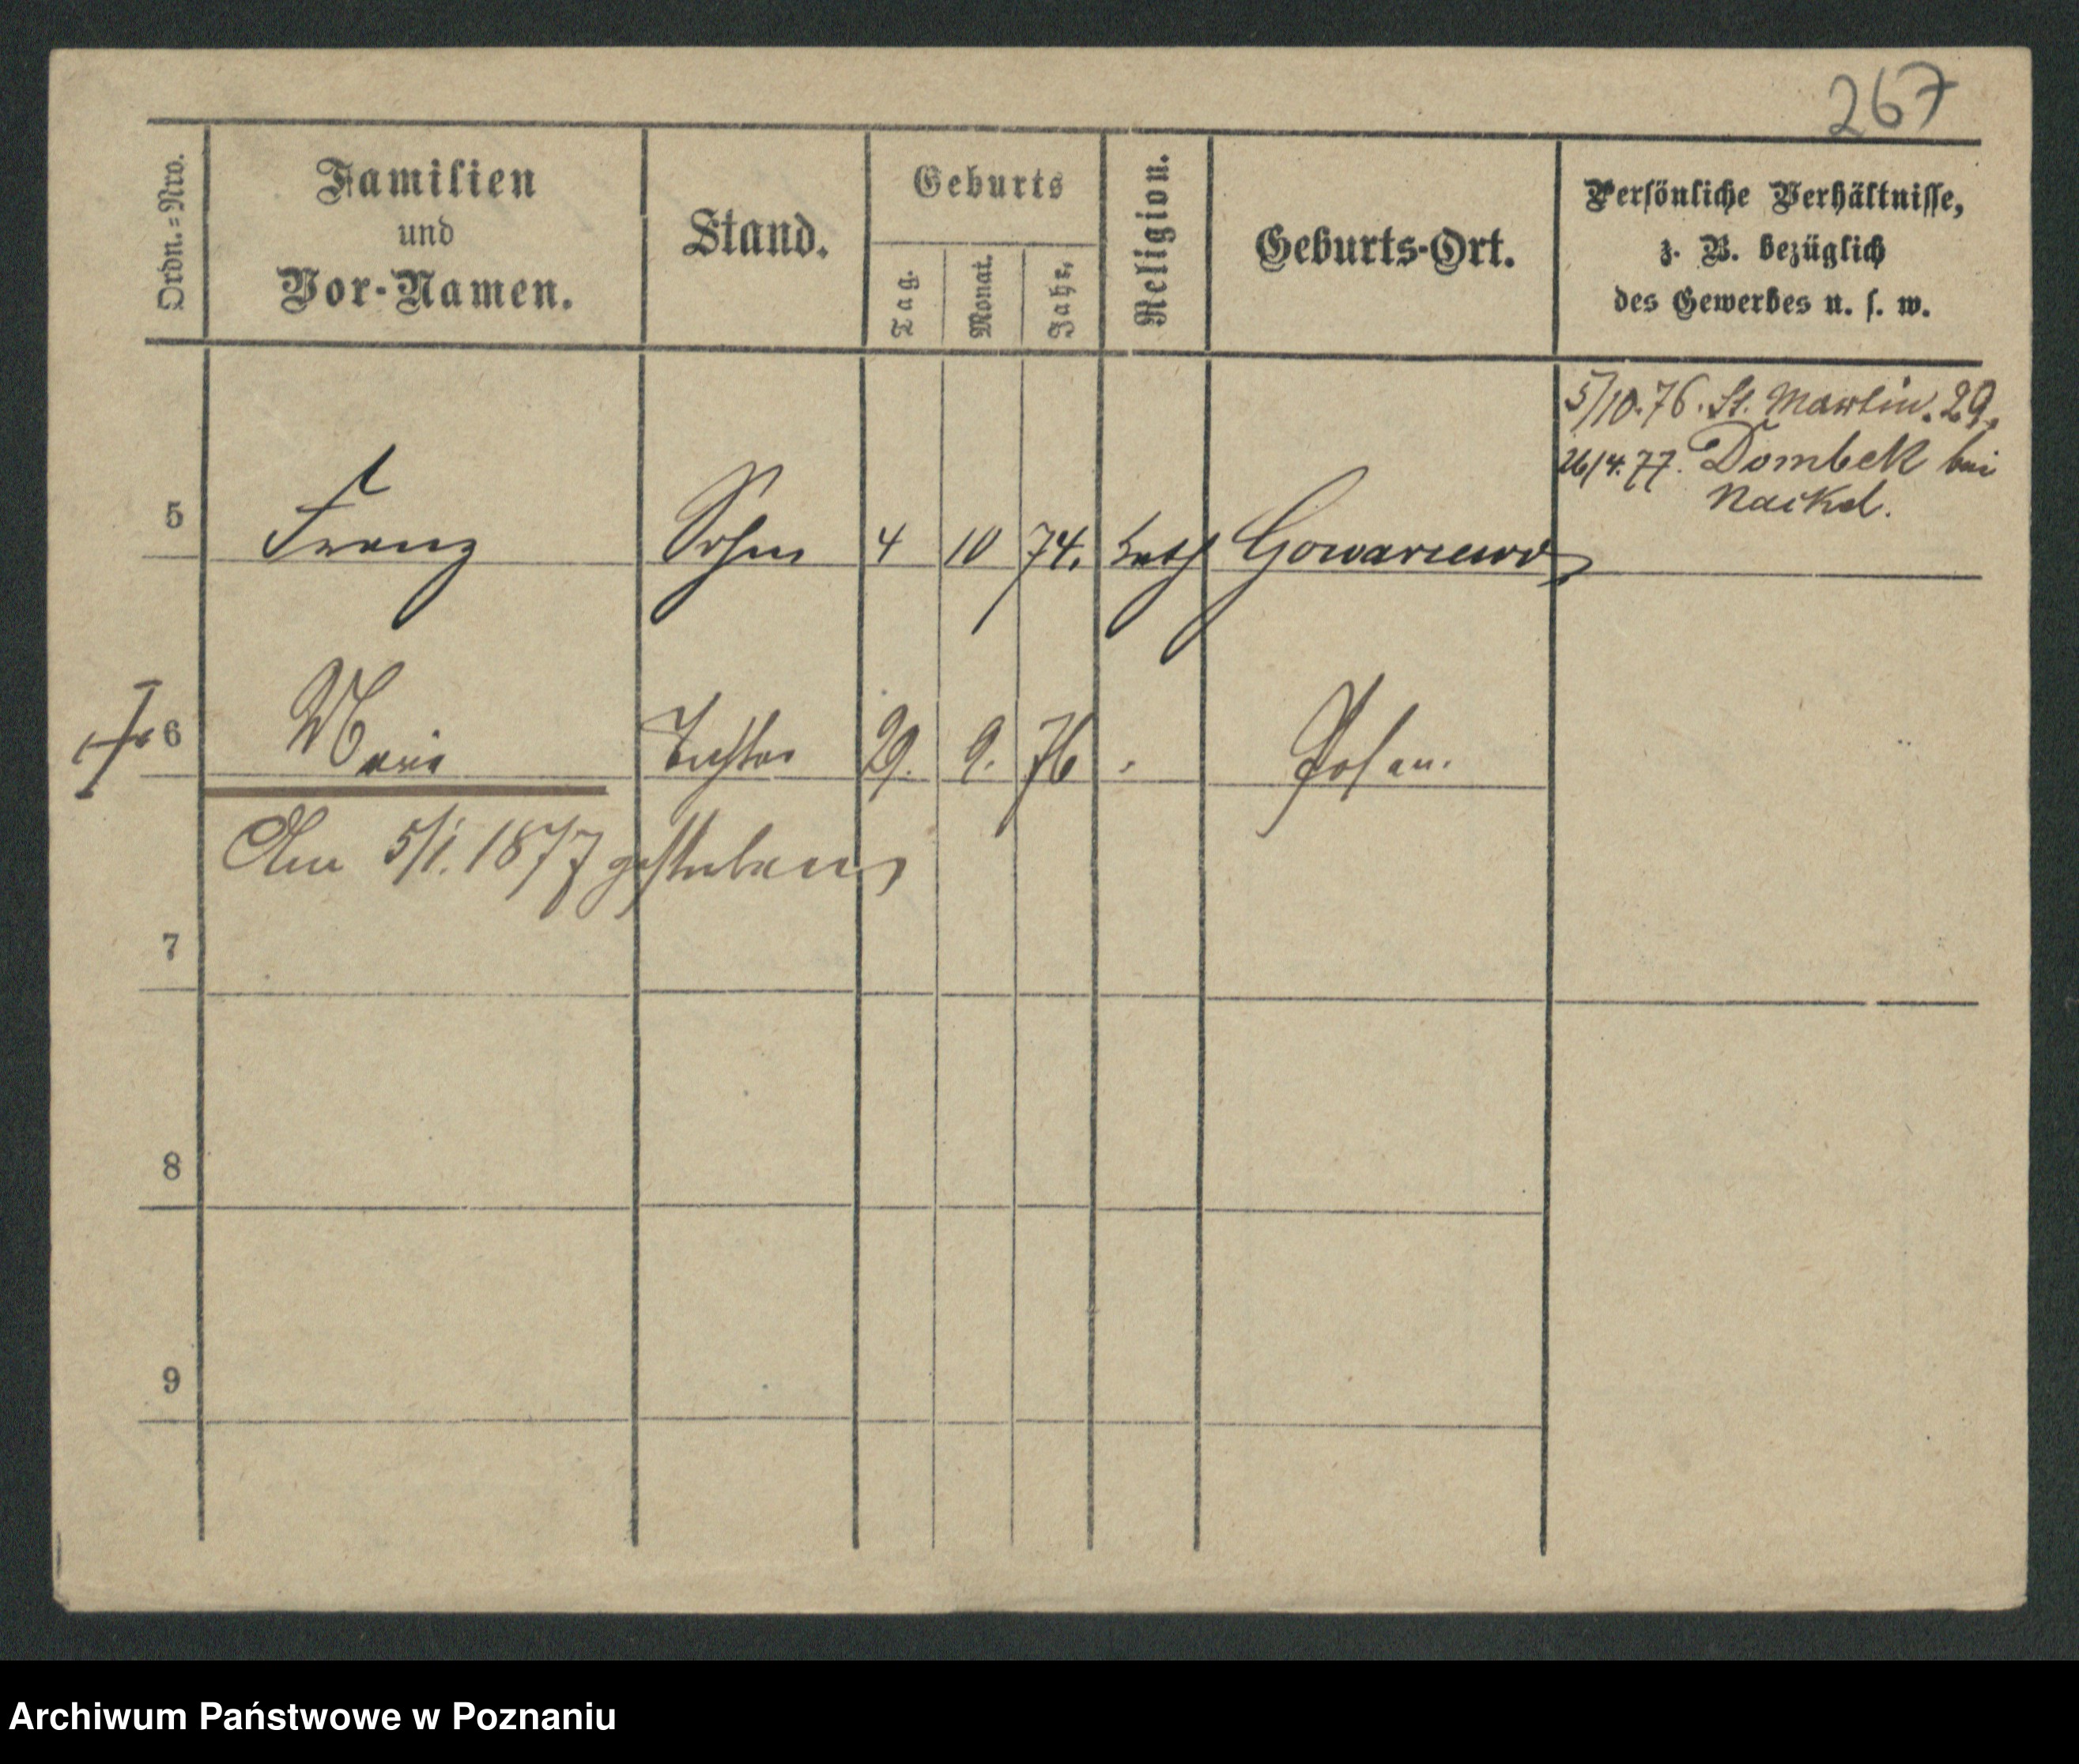 267
Ordn.=Nro.
Familien
und
Vor-Namen.
Stand.
Geburts
Tag.
Monat.
Jahr.
Religion.
Geburts-Ort.
Persönliche Verhältnisse,
z. B. bezüglich
des Gewerbes u. s. w.
5/10.76. St. Martin. 29.
26/4.77. Dombek bei
Nackel.
5 Franz Sohn 4 10 74. kath
6 Marie Tochter 29. 9. 76 Posen.
Am 5/1. 1877 gestorben
7
8
9
Archiwum Państwowe w Poznaniu